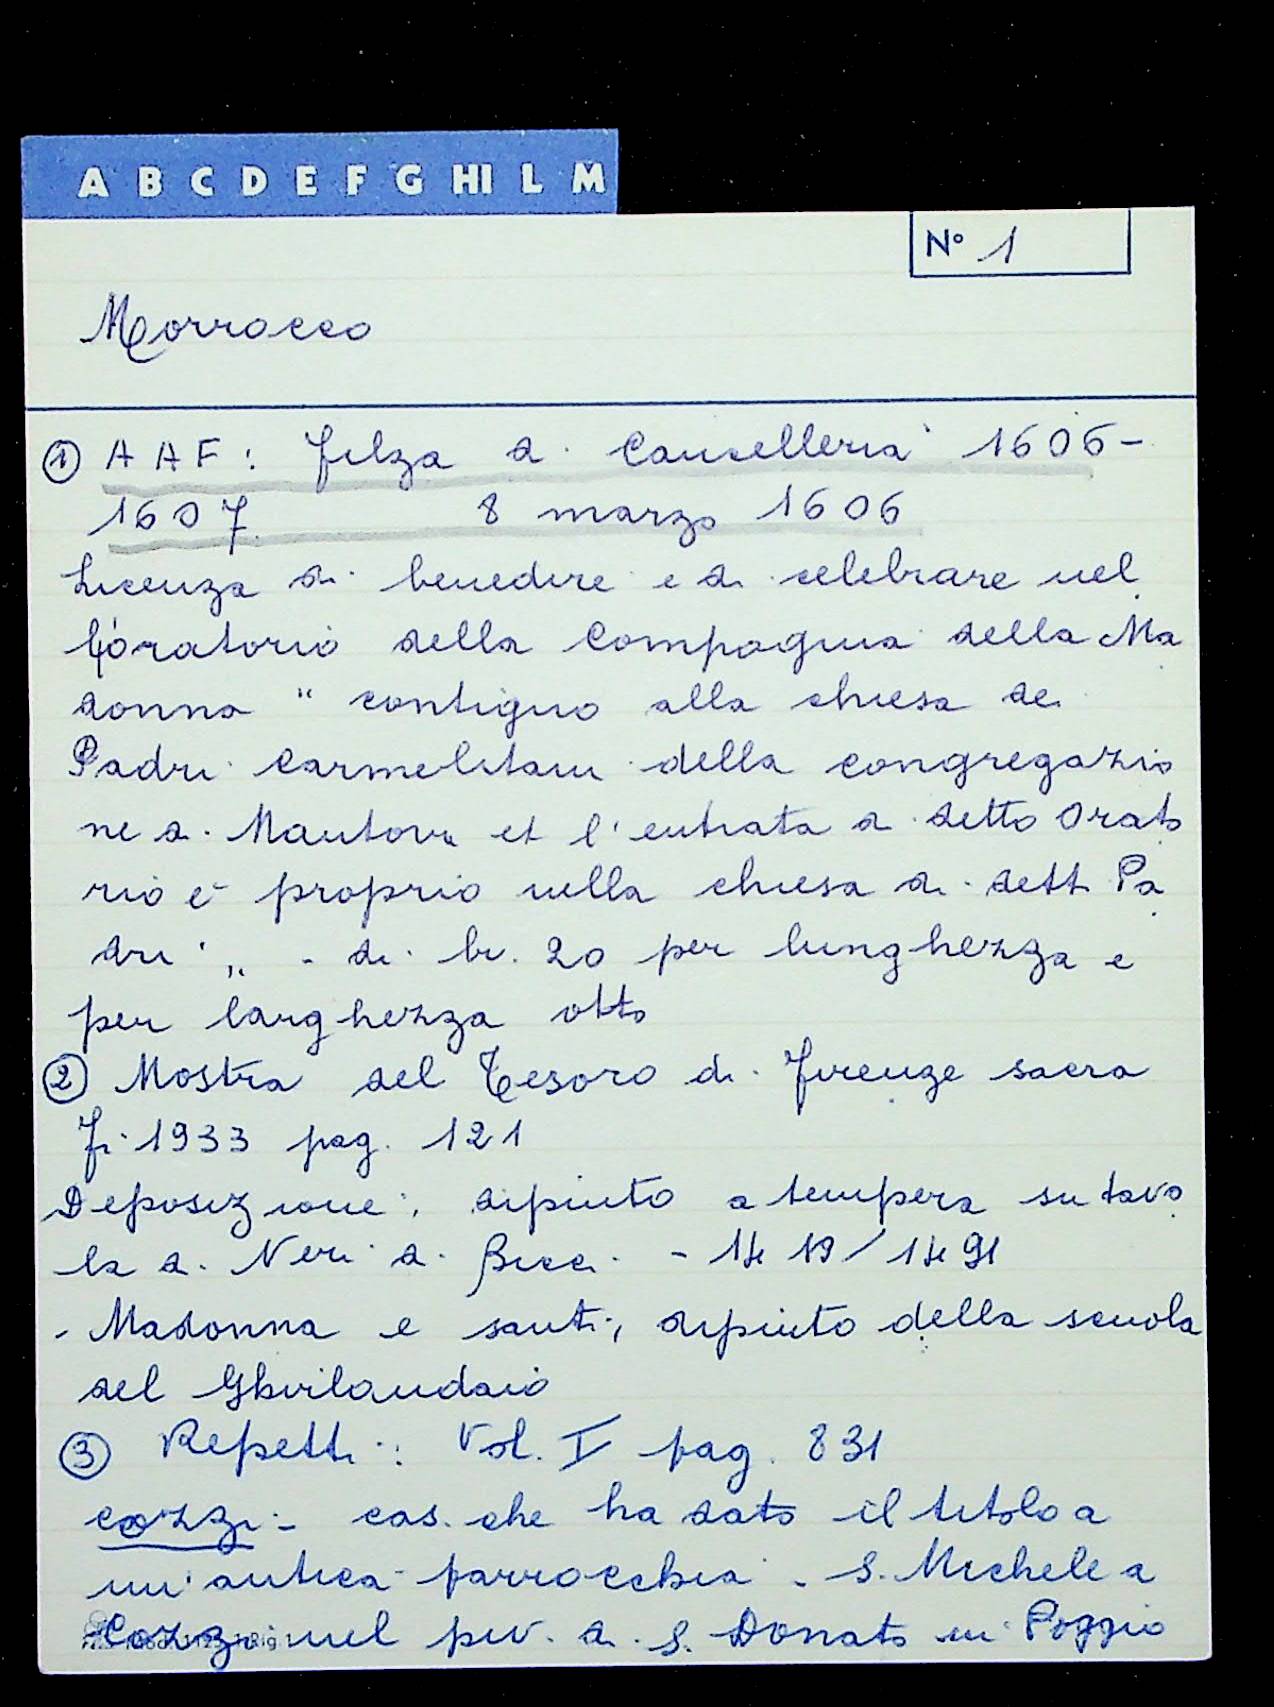 A B C D E F G HI L M
N° 1
Morrocco
① A A F: Filza di Cancelleria 1606-
1607 8 marzo 1606
Licenza di benedire e di celebrare nel
l'oratorio della Compagnia della Ma
donna " contiguo alla chiesa dei
Padri Carmelitani della congregazio
ne di Mantova et l'entrata di detto Orato
rio è proprio nella chiesa di detti Pa
dri „ - di br. 20 per lunghezza e
per larghezza otto
② Mostra del Tesoro di Firenze sacra
Fi 1933 pag. 121
Deposizione: dipinto a tempera su tavo
la di Neri di Bicci - 1419/1491
- Madonna e santi, dipinto della scuola
del Ghirlandaio
③ Repetti: Vol. I pag. 831
Cozzi - cas. che ha dato il titolo a
un'antica parrocchia - S. Michele a
Cozzi nel piv. di S. Donato in Poggio